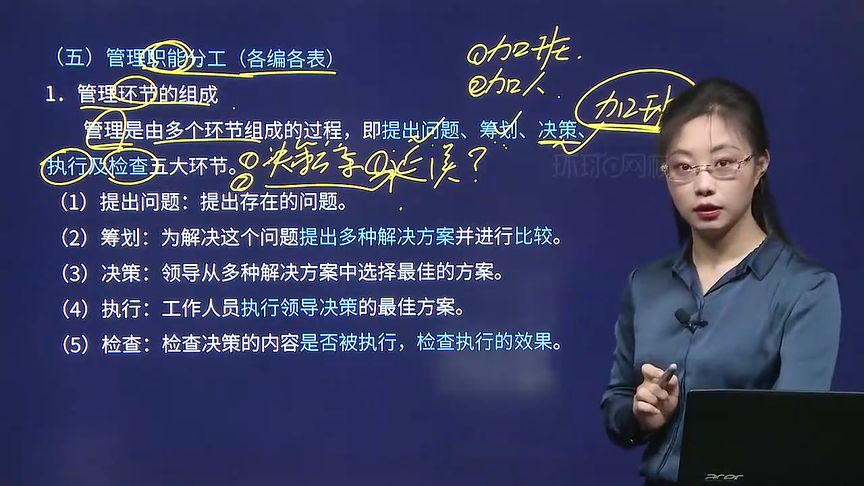 （五）管理职能分工（各编各表）
①加班.
②加人.
1. 管理环节的组成
加班
管理是由多个环节组成的过程，即提出问题、筹划、决策、
执行及检查五大环节。
①决策言①延误？
②
环球@网校
（1）提出问题：提出存在的问题。
（2）筹划：为解决这个问题提出多种解决方案并进行比较。
（3）决策：领导从多种解决方案中选择最佳的方案。
（4）执行：工作人员执行领导决策的最佳方案。
（5）检查：检查决策的内容是否被执行，检查执行的效果。
acer